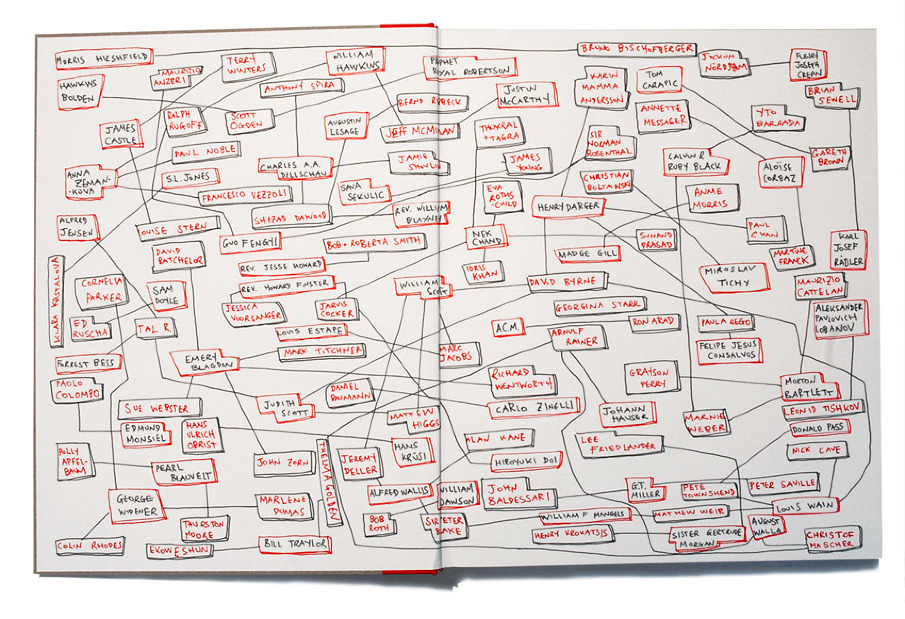 MORRIS HIRSHFIELD
BRUNO BISCHOFBERGER
HAWKINS
BOLDEN
MAURIZIO
ANZERI
TERRY
WINTERS
WILLIAM
HAWKINS
PROPHET
ROYAL ROBERTSON
JOCKUM
NORDSTROM
FLEURY
JOSEPH
CREPIN
ANTHONY SPIRA
JUSTIN
McCARTHY
KARIN
MAMMA
ANDERSSON
TOM
BRIAN
SEWELL
BERND RIBBECK
RALPH
RUGOFF
SCOTT
OGDEN
AUGUSTIN
LESAGE
JEFF McMILLAN
THUKRAL
+ TAGRA
ANNETTE
MESSAGER
YTO
BARRADA
JAMES
CASTLE
SIR
NORMAN
ROSENTHAL
PAUL NOBLE
CHARLES A.A.
DELLSCHAU
JAMIE
JAMES
YOUNG
CALVIN &
RUBY BLACK
ALOÏSE
CORBAZ
GARETH
BROWN
ANNA
ZEMAN-
KOVA
S.L. JONES
CHRISTIAN
BOLTANSKI
FRANCESCO VEZZOLI
SAVA
SEKULIC
EVA
ROTHS-
CHILD
ANNIE
MORRIS
ALFRED
JENSEN
LOUISE STERN
SHEZAD DAWOOD
REV. WILLIAM
BLAYNEY
HENRY DARGER
PAUL
CHAN
KARL
JOSEF
RÄDLER
GUO FENGYI
BOB + ROBERTA SMITH
NEK
CHAND
SUNAND
PRASAD
MADGE GILL
MARTINE
FRANCK
DAVID
BATCHELOR
KLARA KRISTALOVA
REV. JESSE HOWARD
IDRIS
KHAN
MIROSLAV
TICHY
MAURIZIO
CATTELAN
CORNELIA
PARKER
SAM
DOYLE
REV. HOWARD FINSTER
WILLIAM
SCOTT
DAVID BYRNE
ALEKSANDER
PAVLOVICH
LOBANOV
JESSICA
VOORSANGER
JARVIS
COCKER
GEORGINA STARR
ED
RUSCHA
TAL R
LOUIS ESTAPE
A.C.M.
ARNULF
RAINER
RON ARAD
PAULA REGO
MARK TITCHNER
MARC
JACOBS
FELIPE JESUS
CONSALVOS
FORREST BESS
EMERY
BLAGDON
PAOLO
COLOMBO
RICHARD
WENTWORTH
GRAYSON
PERRY
MORTON
BARTLETT
SUE WEBSTER
JUDITH
SCOTT
DANIEL
BAUMANN
MATTHEW
HIGGS
CARLO ZINELLI
JOHANN
HAUSER
MARNIE
WEBER
LEONID TISHKOV
EDMUND
MONSIEL
HANS
ULRICH
OBRIST
DONALD PASS
THELMA GOLDEN
HANS
KRÜSI
ALAN KANE
LEE
FRIEDLANDER
NICK CAVE
POLLY
APFEL-
BAUM
PEARL
BLAUVELT
JOHN ZORN
JEREMY
DELLER
HIROYUKI DOI
ALFRED WALLIS
WILLIAM
DAWSON
JOHN
BALDESSARI
G.T.
MILLER
PETE
TOWNSHEND
PETER SAVILLE
GEORGE
WIDENER
MARLENE
DUMAS
LOUIS WAIN
WILLIAM F MANGELS
MATHEW WEIR
THURSTON
MOORE
BOB
ROTH
SIR PETER
BLAKE
HENRY KROKATSIS
SISTER GERTRUDE
MORGAN
AUGUST
WALLA
CHRISTOF
MASCHER
COLIN RHODES
EKOW ESHUN
BILL TRAYLOR